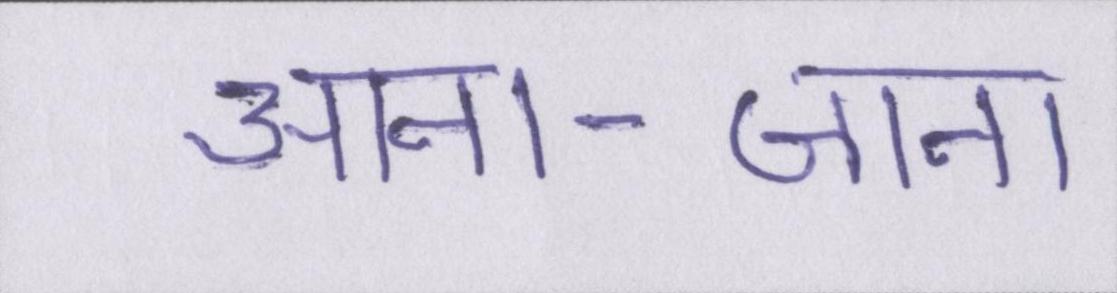 आना-जाना